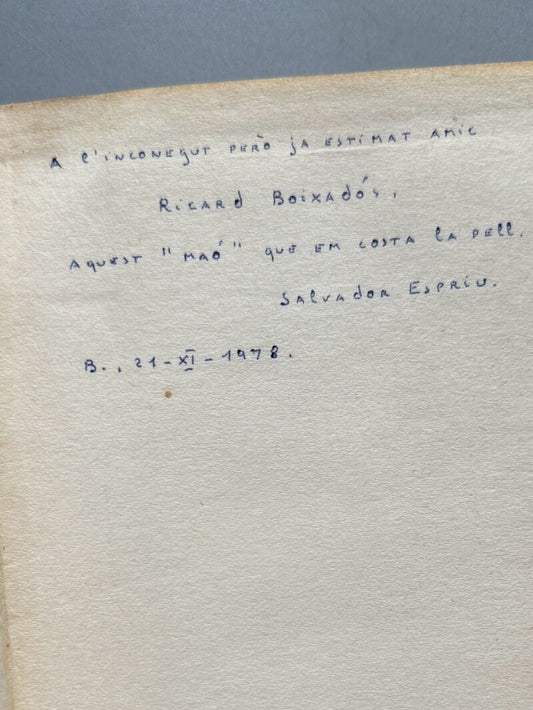 A l'inconegut però ja estimat amic
Ricard Boixadós,
aquest "maó" que em costa la pell.
Salvador Espriu.
B., 21-XI-1978.